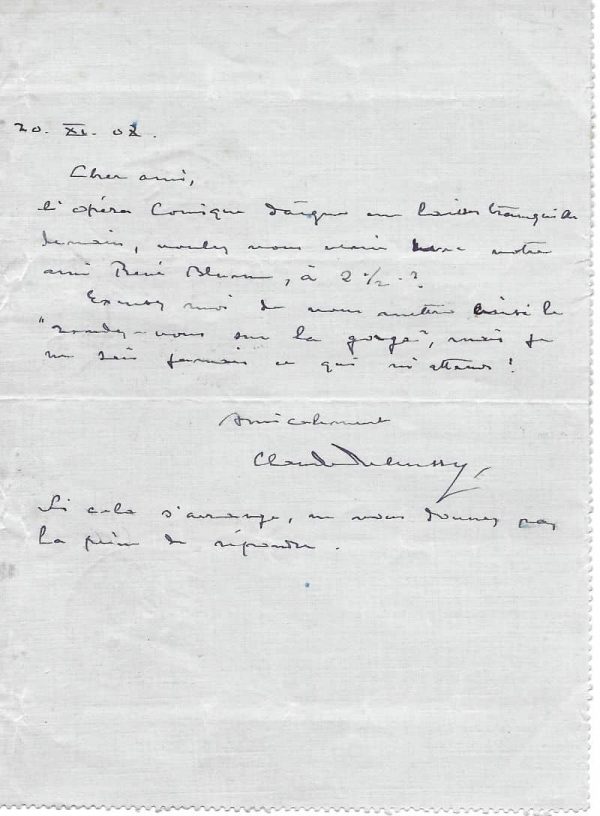 20. XI. 02.
Cher ami,
l'opéra Comique daigne me laisser tranquille
demain, voulez vous venir avec notre
ami René Blum, à 2 ½ ?
Excusez moi de vous mettre ainsi le
"rendez-vous sur la gorge", mais je
ne sais jamais ce qui m'attend !
Amicalement
Claude Debussy
Si cela s'arrange, ne vous donnez pas
la peine de répondre.